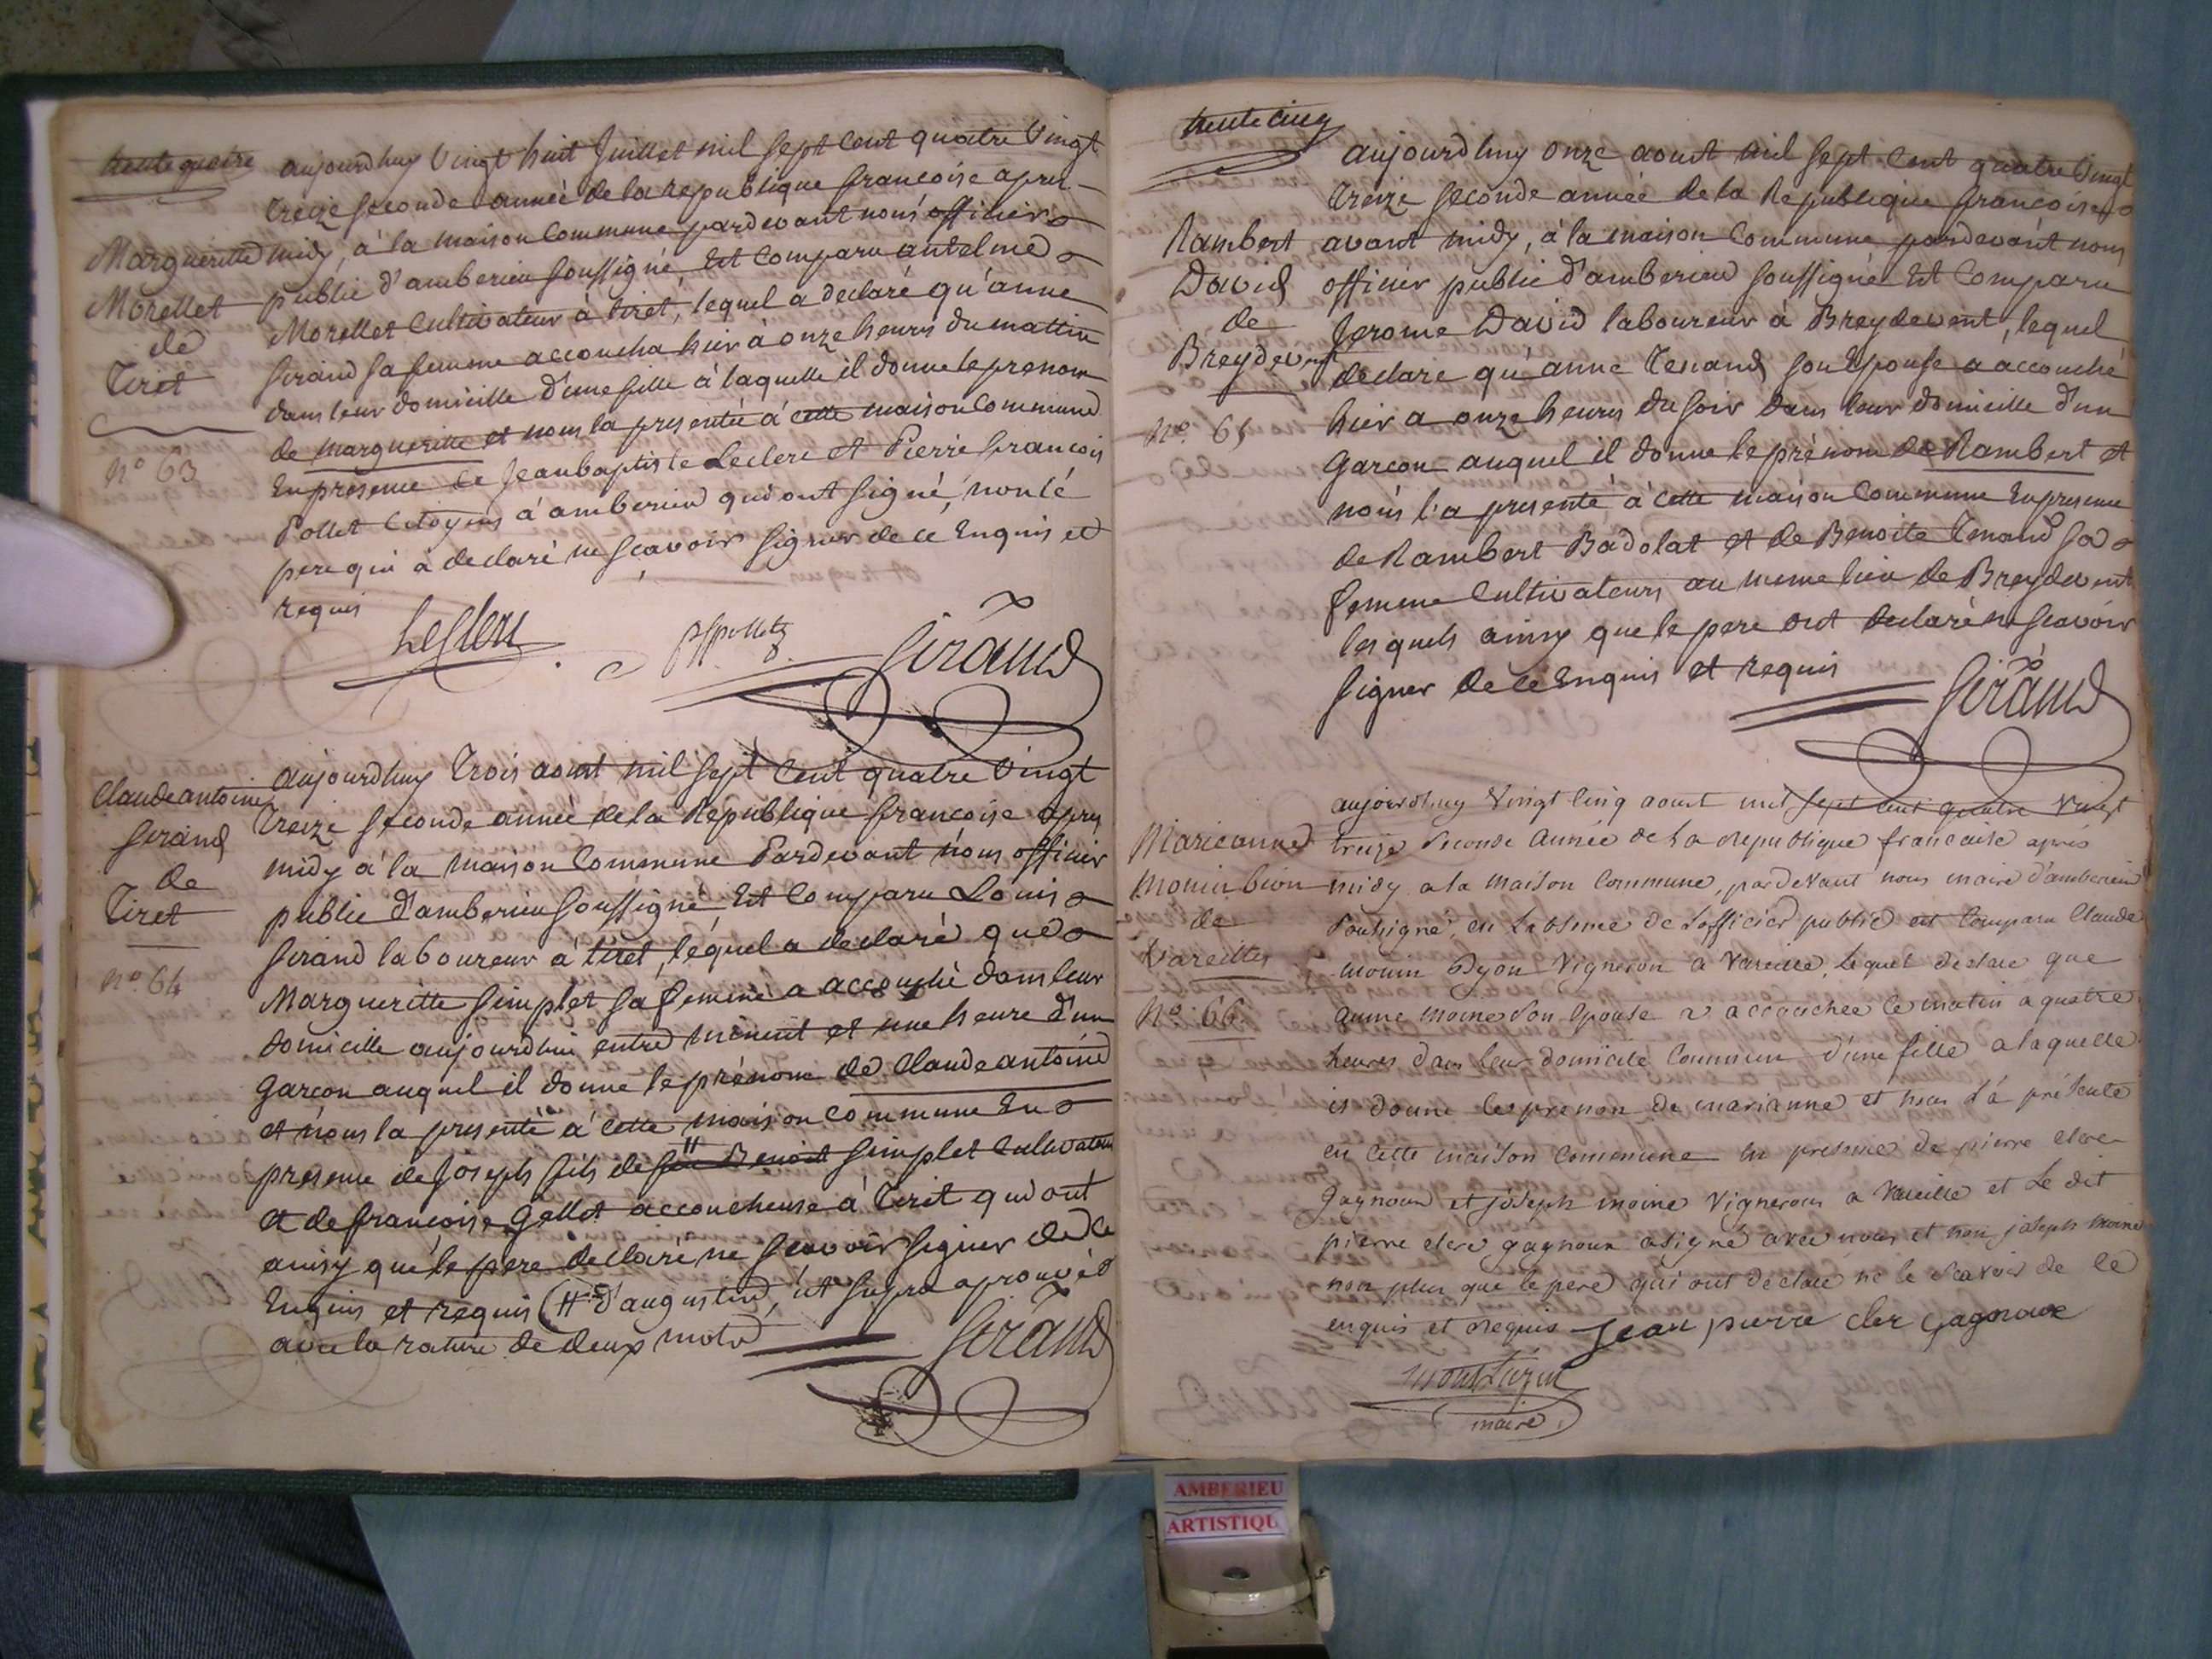 trente quatre
Margueritte
Morellet
de
Tiret
n.º 63
aujourdhuy Vingt huit Juillet mil sept Cent quatre Vingt
treize seconde année de la Republique francoise apres
midy, à la maison Commune pardevant nous officier
public d'amberieu soussigné, Est Comparu antelme
Morellet Cultivateur à tiret, lequel a declaré qu'anne
Girand sa femme accoucha hier à onze heures du mattin
dans leur domicille d'une fille à laquelle il donne le prenom
de Margueritte et nous la presentée à cette maison Commune
En presence de Jeanbaptiste Leclerc et Pierre francois
Pollet Citoyens à amberieu qui ont signé, non le
pere qui à declaré ne scavoir signer de ce Enquis et
requis
Leclerc
pfpollet
Girand
Claude antoine
Girand
de
Tiret
n.º 64
aujourdhuy Trois aoust mil sept Cent quatre Vingt
treize seconde année de la Republique francoise apres
midy à la maison Commune Pardevant nous officier
public d'amberieu soussigné Est Comparu Louis
Girand laboureur à tiret, lequel a declaré que
Margueritte simplet sa femme a accouché dans leur
domicille aujourdhui entre minuit et une heure d'un
Garcon auquel il donne le prénom de Claude antoine
et nous la presenté à cette maison commune En
presence de Joseph fils de feu Benoit simplet Cultivateur
et de francoise Gellet accoucheuse à Tiret qui ont
ainsy que le pere declaré ne scavoir signer de ce
Enquis et requis (# d'augustin, ut supra aprouvée
avec la rature de deux mots
Girand
trente cinq
Rambert
David
de
Breydevent
n.º 65
aujourdhuy onze aoust mil sept Cent quatre Vingt
treize seconde année de la Republique francoise
avant midy, à la maison Commune pardevant nous
officier public d'amberieu soussigné Est Comparu
Jerome David laboureur à Breydevent, lequel
declare qu'anne Tenand son Epouse a accouché
hier a onze heures du soir dans leur domicille d'un
Garcon auquel il donne le prénom de Rambert et
nous l'a presenté à cette maison Commune En presence
de Rambert Badolat et de Benoite Tenand sa
femme Cultivateurs au meme lieu de Breydevent
lesquels ainsy que le pere ont declaré ne scavoir
signer de ce Enquis et requis
Girand
Marieanne
Monin bion
de
Vareilles
n.º 66.
aujourdhuy Vingt Cinq aoust mil sept cent quatre Vingt
treize Seconde Année de La Republique francaise après
midy a la maison Commune, pardevant nous maire d'amberieu
Soussigné, en L'absence de L'officier public est Comparu Claude
monin Vigneron a Vareille, Lequel declare que
anne moine Son epouse a accouchée ce matin a quatre
heures dans leur domicile Commun d'une fille a laquelle
il donne le prenon de marianne et nous L'á présenté
en cette maison Commune en presence de pierre clere
gagnoux et joseph moine Vignerons a Vareille et Le dit
pierre clere gagnoux a signé avec nous et non joseph moine
non plus que le pere qui ont declare ne le Scavoir de ce
enquis et requis Jean pierre cler Gagnoux
maire
AMBERIEU
ARTISTIQU